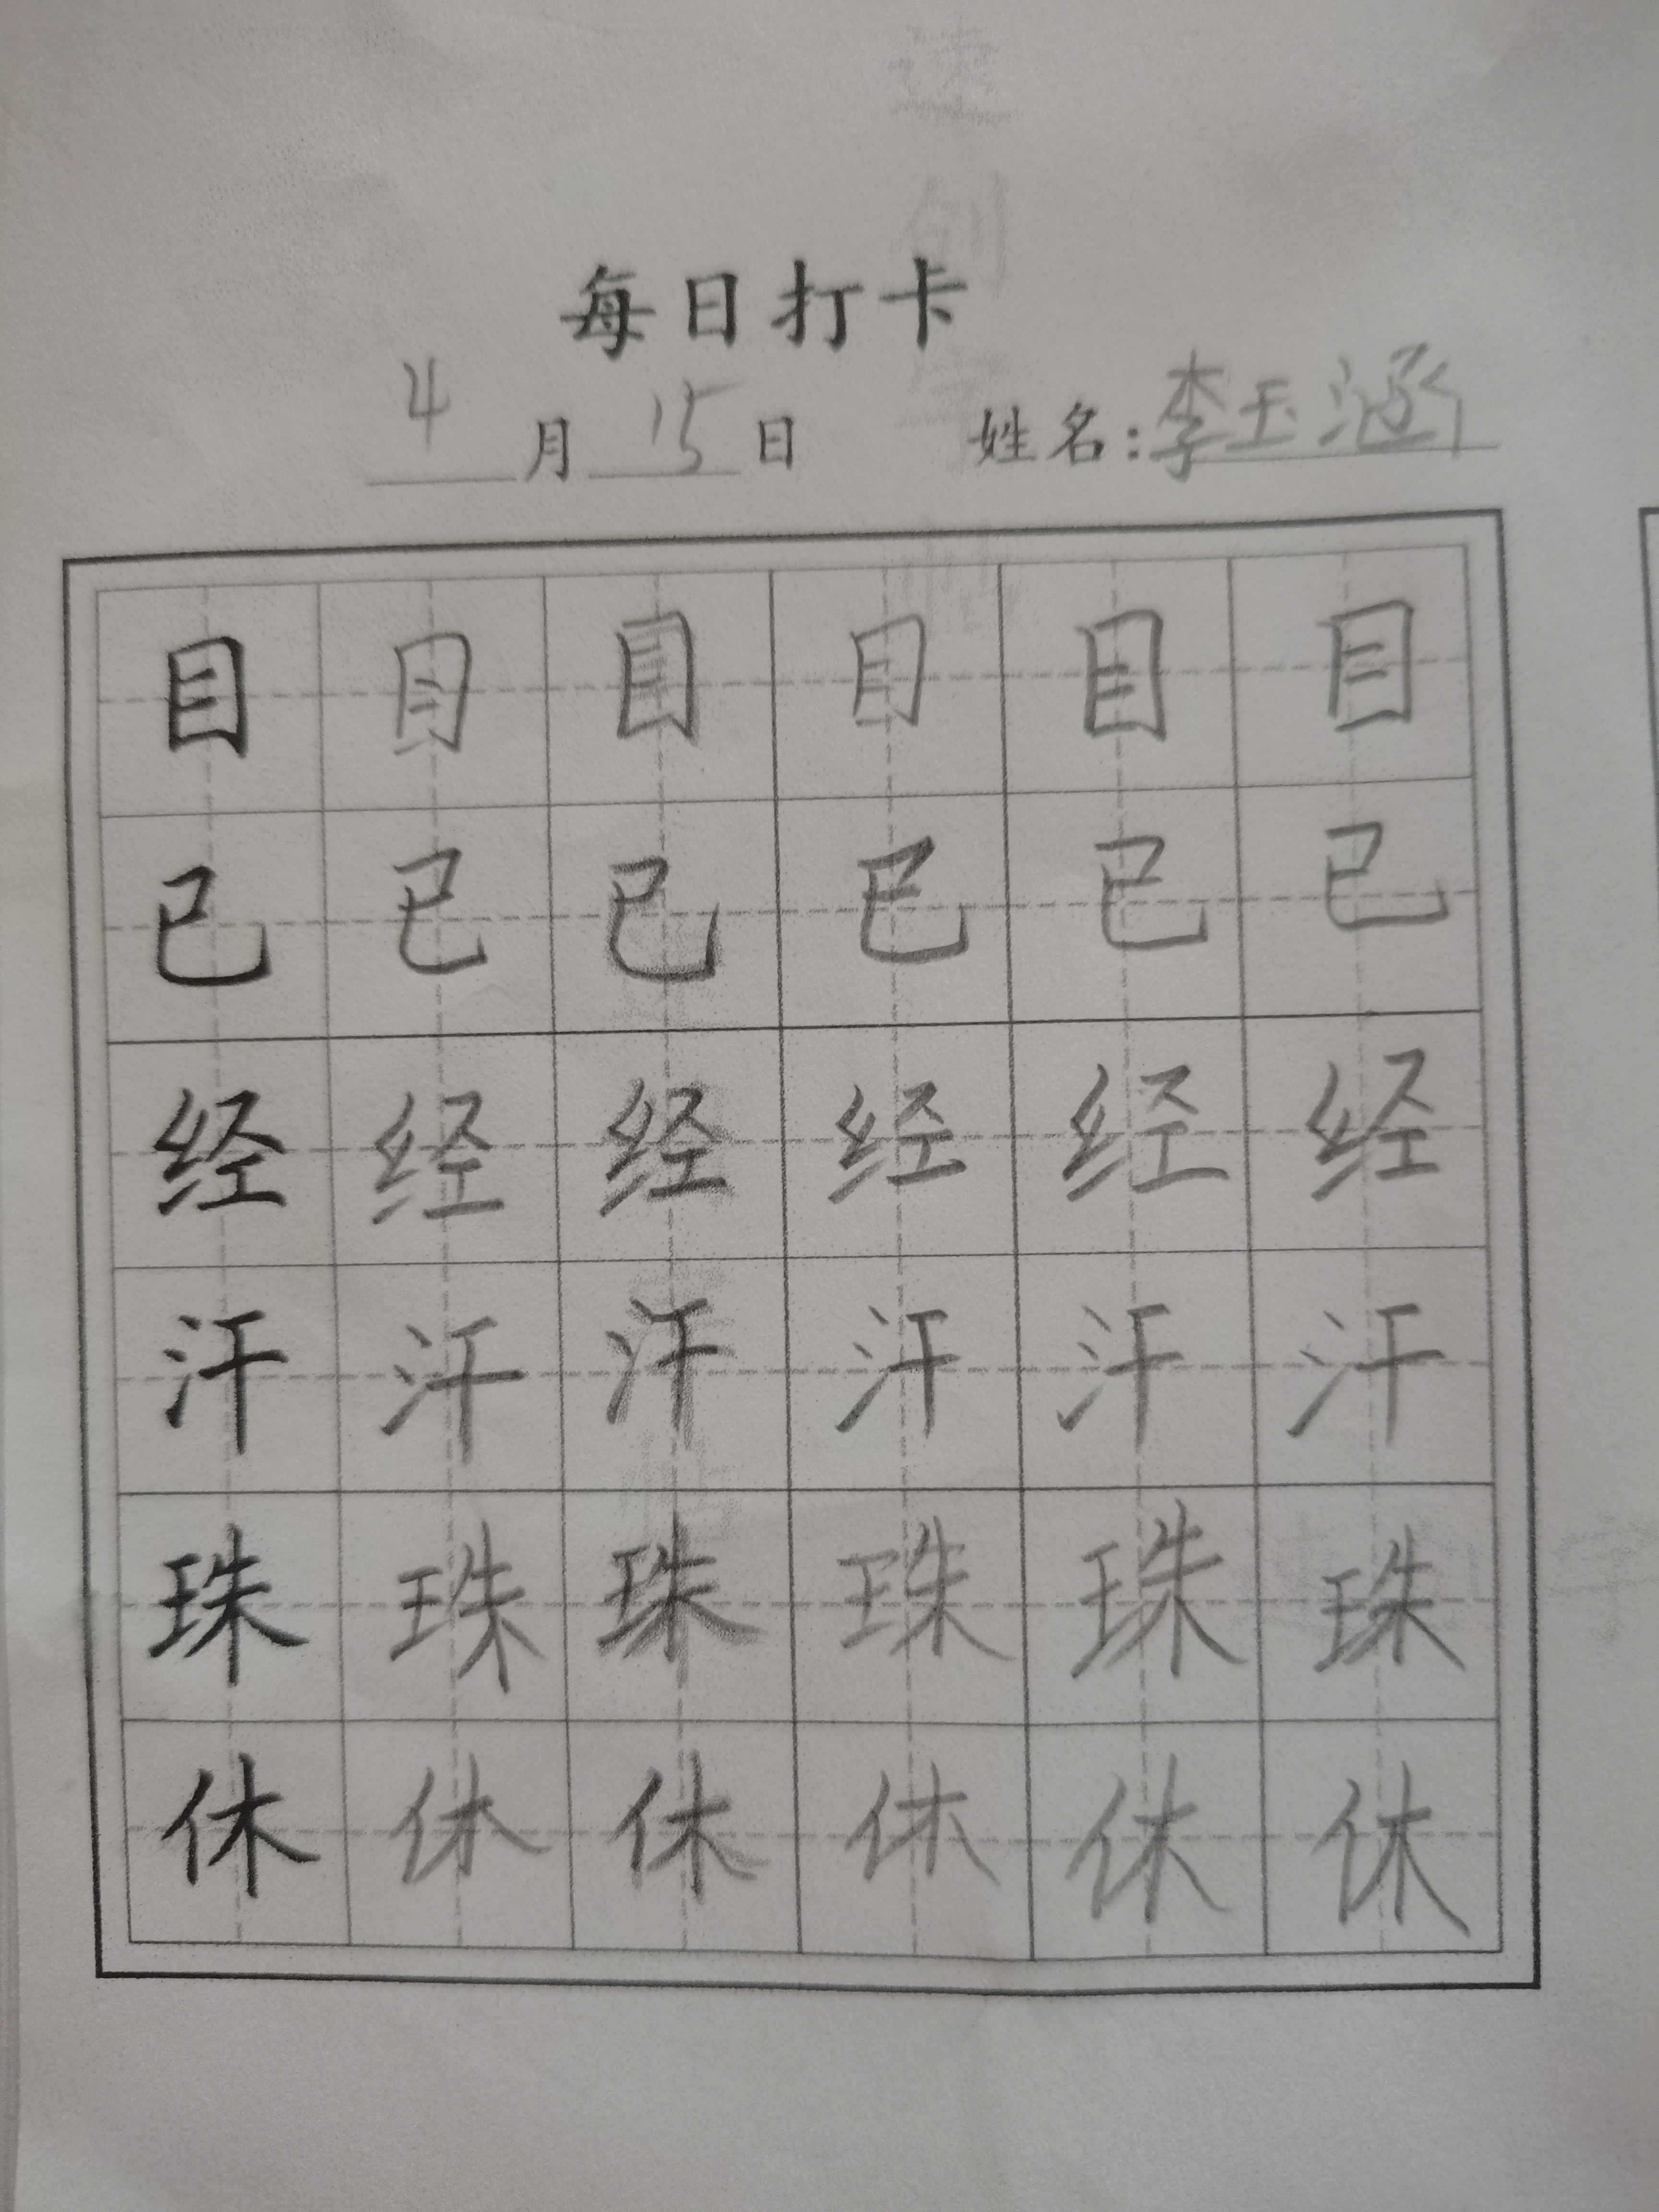 每日打卡
4月15日 姓名:李玉涵
目目目目目目
已已已已已已
经经经经经经
汗汗汗汗汗汗
珠珠珠珠珠珠
休休休休休休